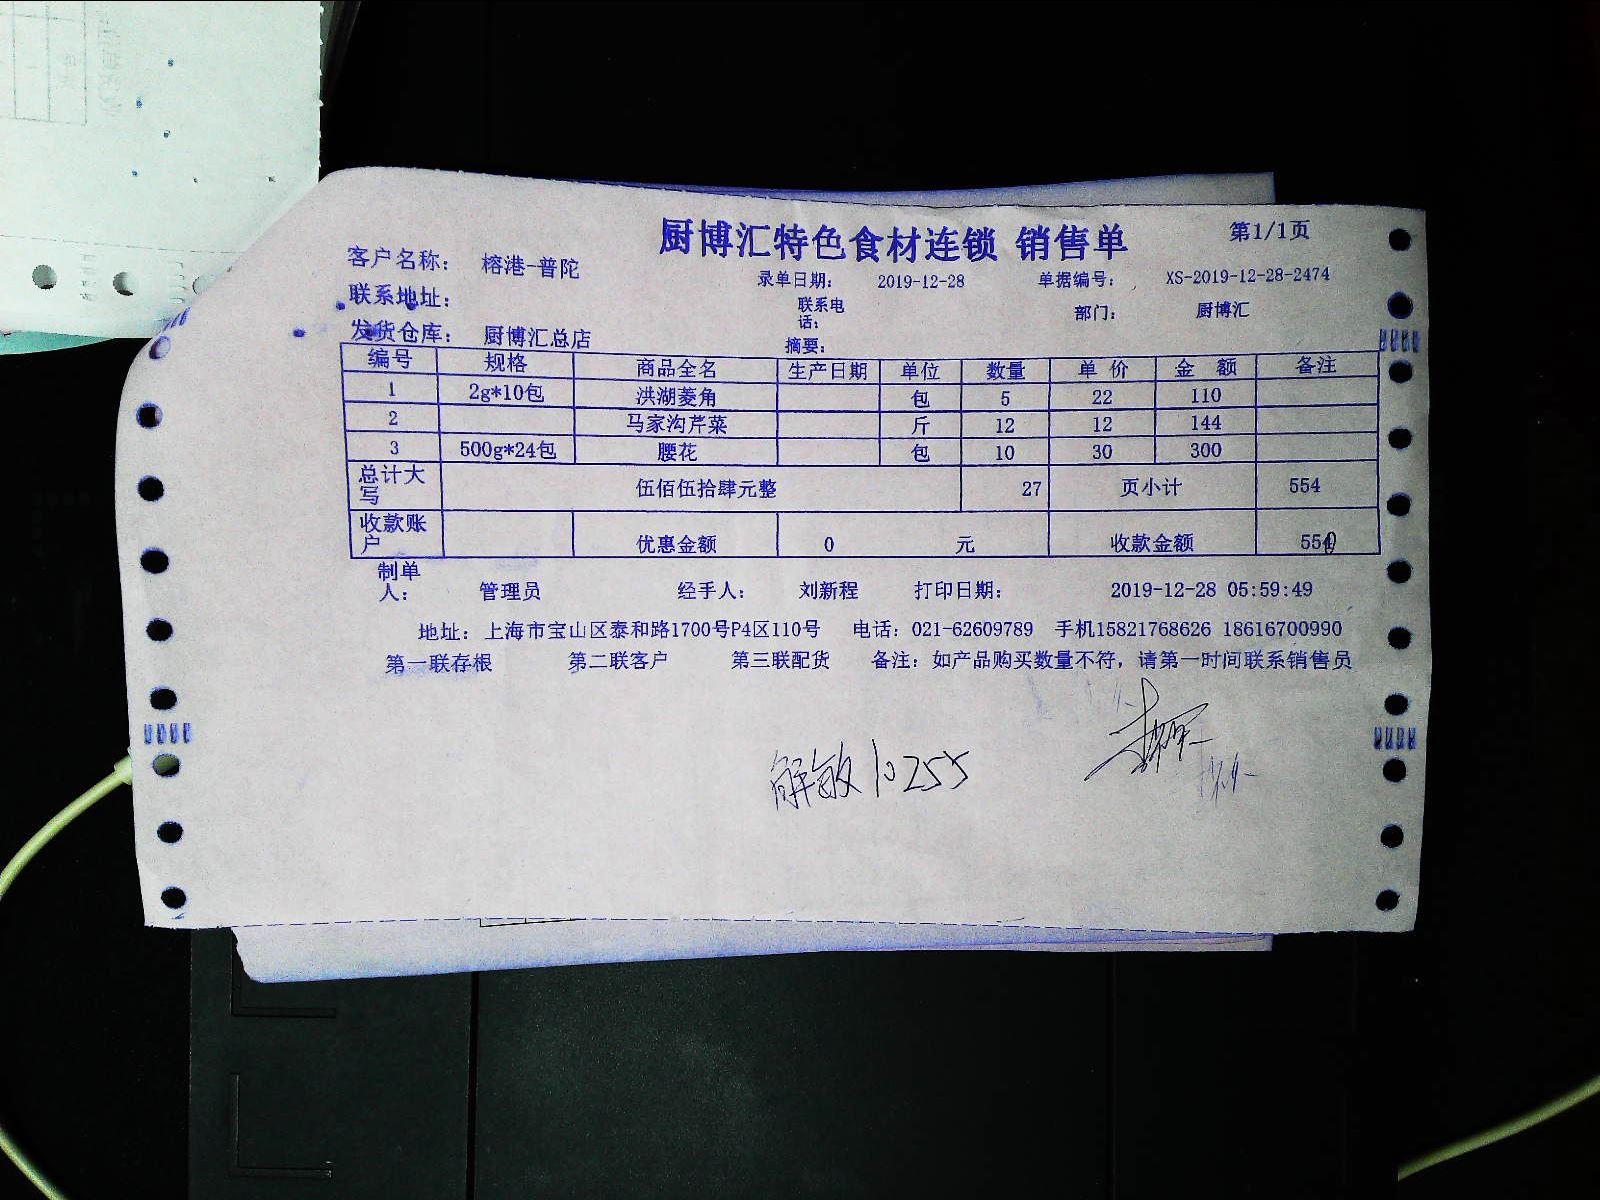 厨博汇特色食材连锁 销售单
第1/1页
客户名称： 榕港-普陀
录单日期： 2019-12-28 单据编号： XS-2019-12-28-2474
联系地址： 联系电话： 部门： 厨博汇
发货仓库： 厨博汇总店 摘要：
编号 规格 商品全名 生产日期 单位 数量 单价 金额 备注
1 2g*10包 洪湖菱角 包 5 22 110
2 马家沟芹菜 斤 12 12 144
3 500g*24包 腰花 包 10 30 300
总计大写 伍佰伍拾肆元整 27 页小计 554
收款账户 优惠金额 0 元 收款金额 550
制单人： 管理员 经手人： 刘新程 打印日期： 2019-12-28 05:59:49
地址：上海市宝山区泰和路1700号P4区110号 电话：021-62609789 手机15821768626 18616700990
第一联存根 第二联客户 第三联配货 备注：如产品购买数量不符，请第一时间联系销售员
解敏10255